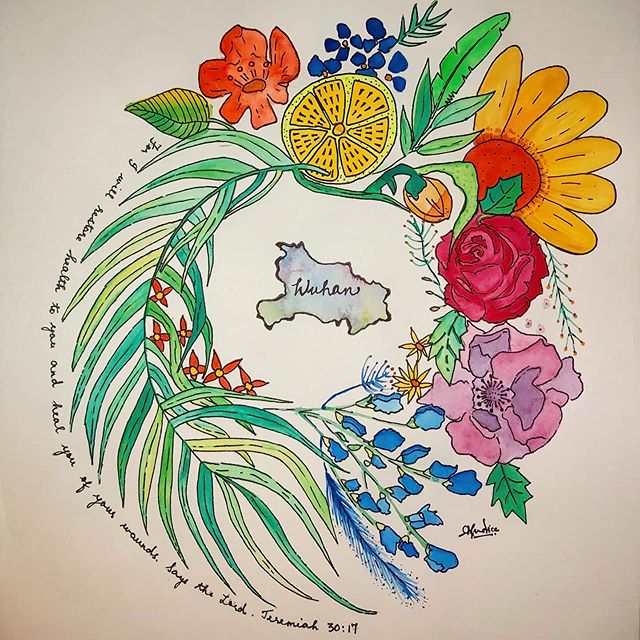 For I will restore health to you and heal you of your wounds, Says the Lord. Jeremiah 30:17
Wuhan